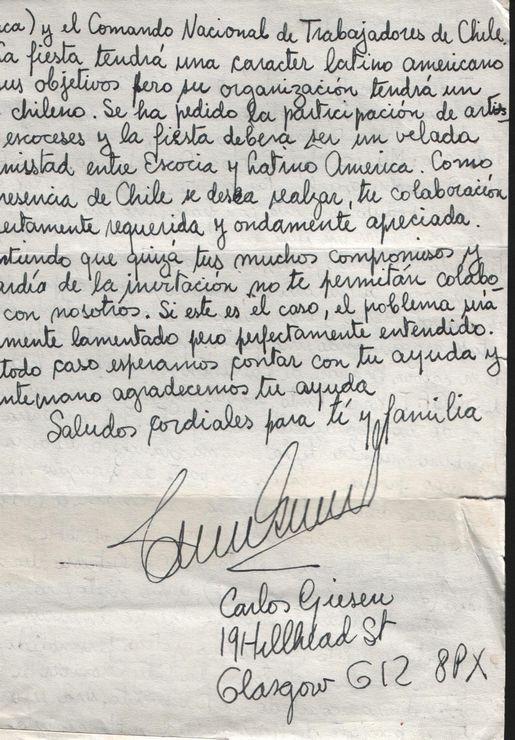 ca) y el Comando Nacional de Trabajadores de Chile.
La fiesta tendrá una caracter latino americano
sus objetivos pero su organización tendrá un
chileno. Se ha pedido la participación de artis
escoceses y la fiesta deberá ser un velada
misstad entre Escocia y Latino America. Como
resencia de Chile se desea realzar, tu colaboración
ertamente requerida y ondamente apreciada.
ntiendo que quizá tus muchos compromisos y
ardío de la invitación no te permitán colabo
con nosotros. Si este es el caso, el problema será
mente lamentado pero perfectamente entendido.
todo caso esperamos contar con tu ayuda y
ntemano agradecemos tu ayuda
Saludos cordiales para tí y familia
Carlos Giesen
19 Hillhead St
Glasgow G12 8PX